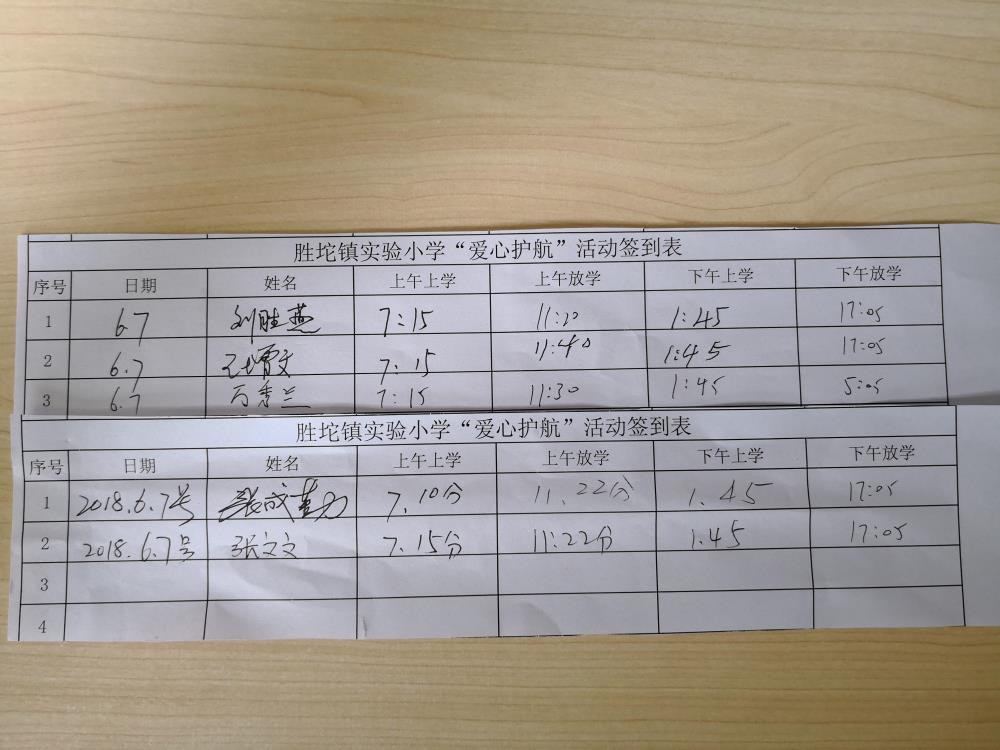 胜坨镇实验小学“爱心护航”活动签到表
序号 日期 姓名 上午上学 上午放学 下午上学 下午放学
1 6.7 刘胜燕 7:15 11:20 1:45 17:05
2 6.7 7:15 11:40 1:45 17:05
3 6.7 万秀兰 7:15 11:30 1:45 5:05
胜坨镇实验小学“爱心护航”活动签到表
序号 日期 姓名 上午上学 上午放学 下午上学 下午放学
1 2018.6.7号 张成 7.10分 11.22分 1.45 17:05
2 2018.6.7号 张文文 7.15分 11:22分 1:45 17:05
3
4